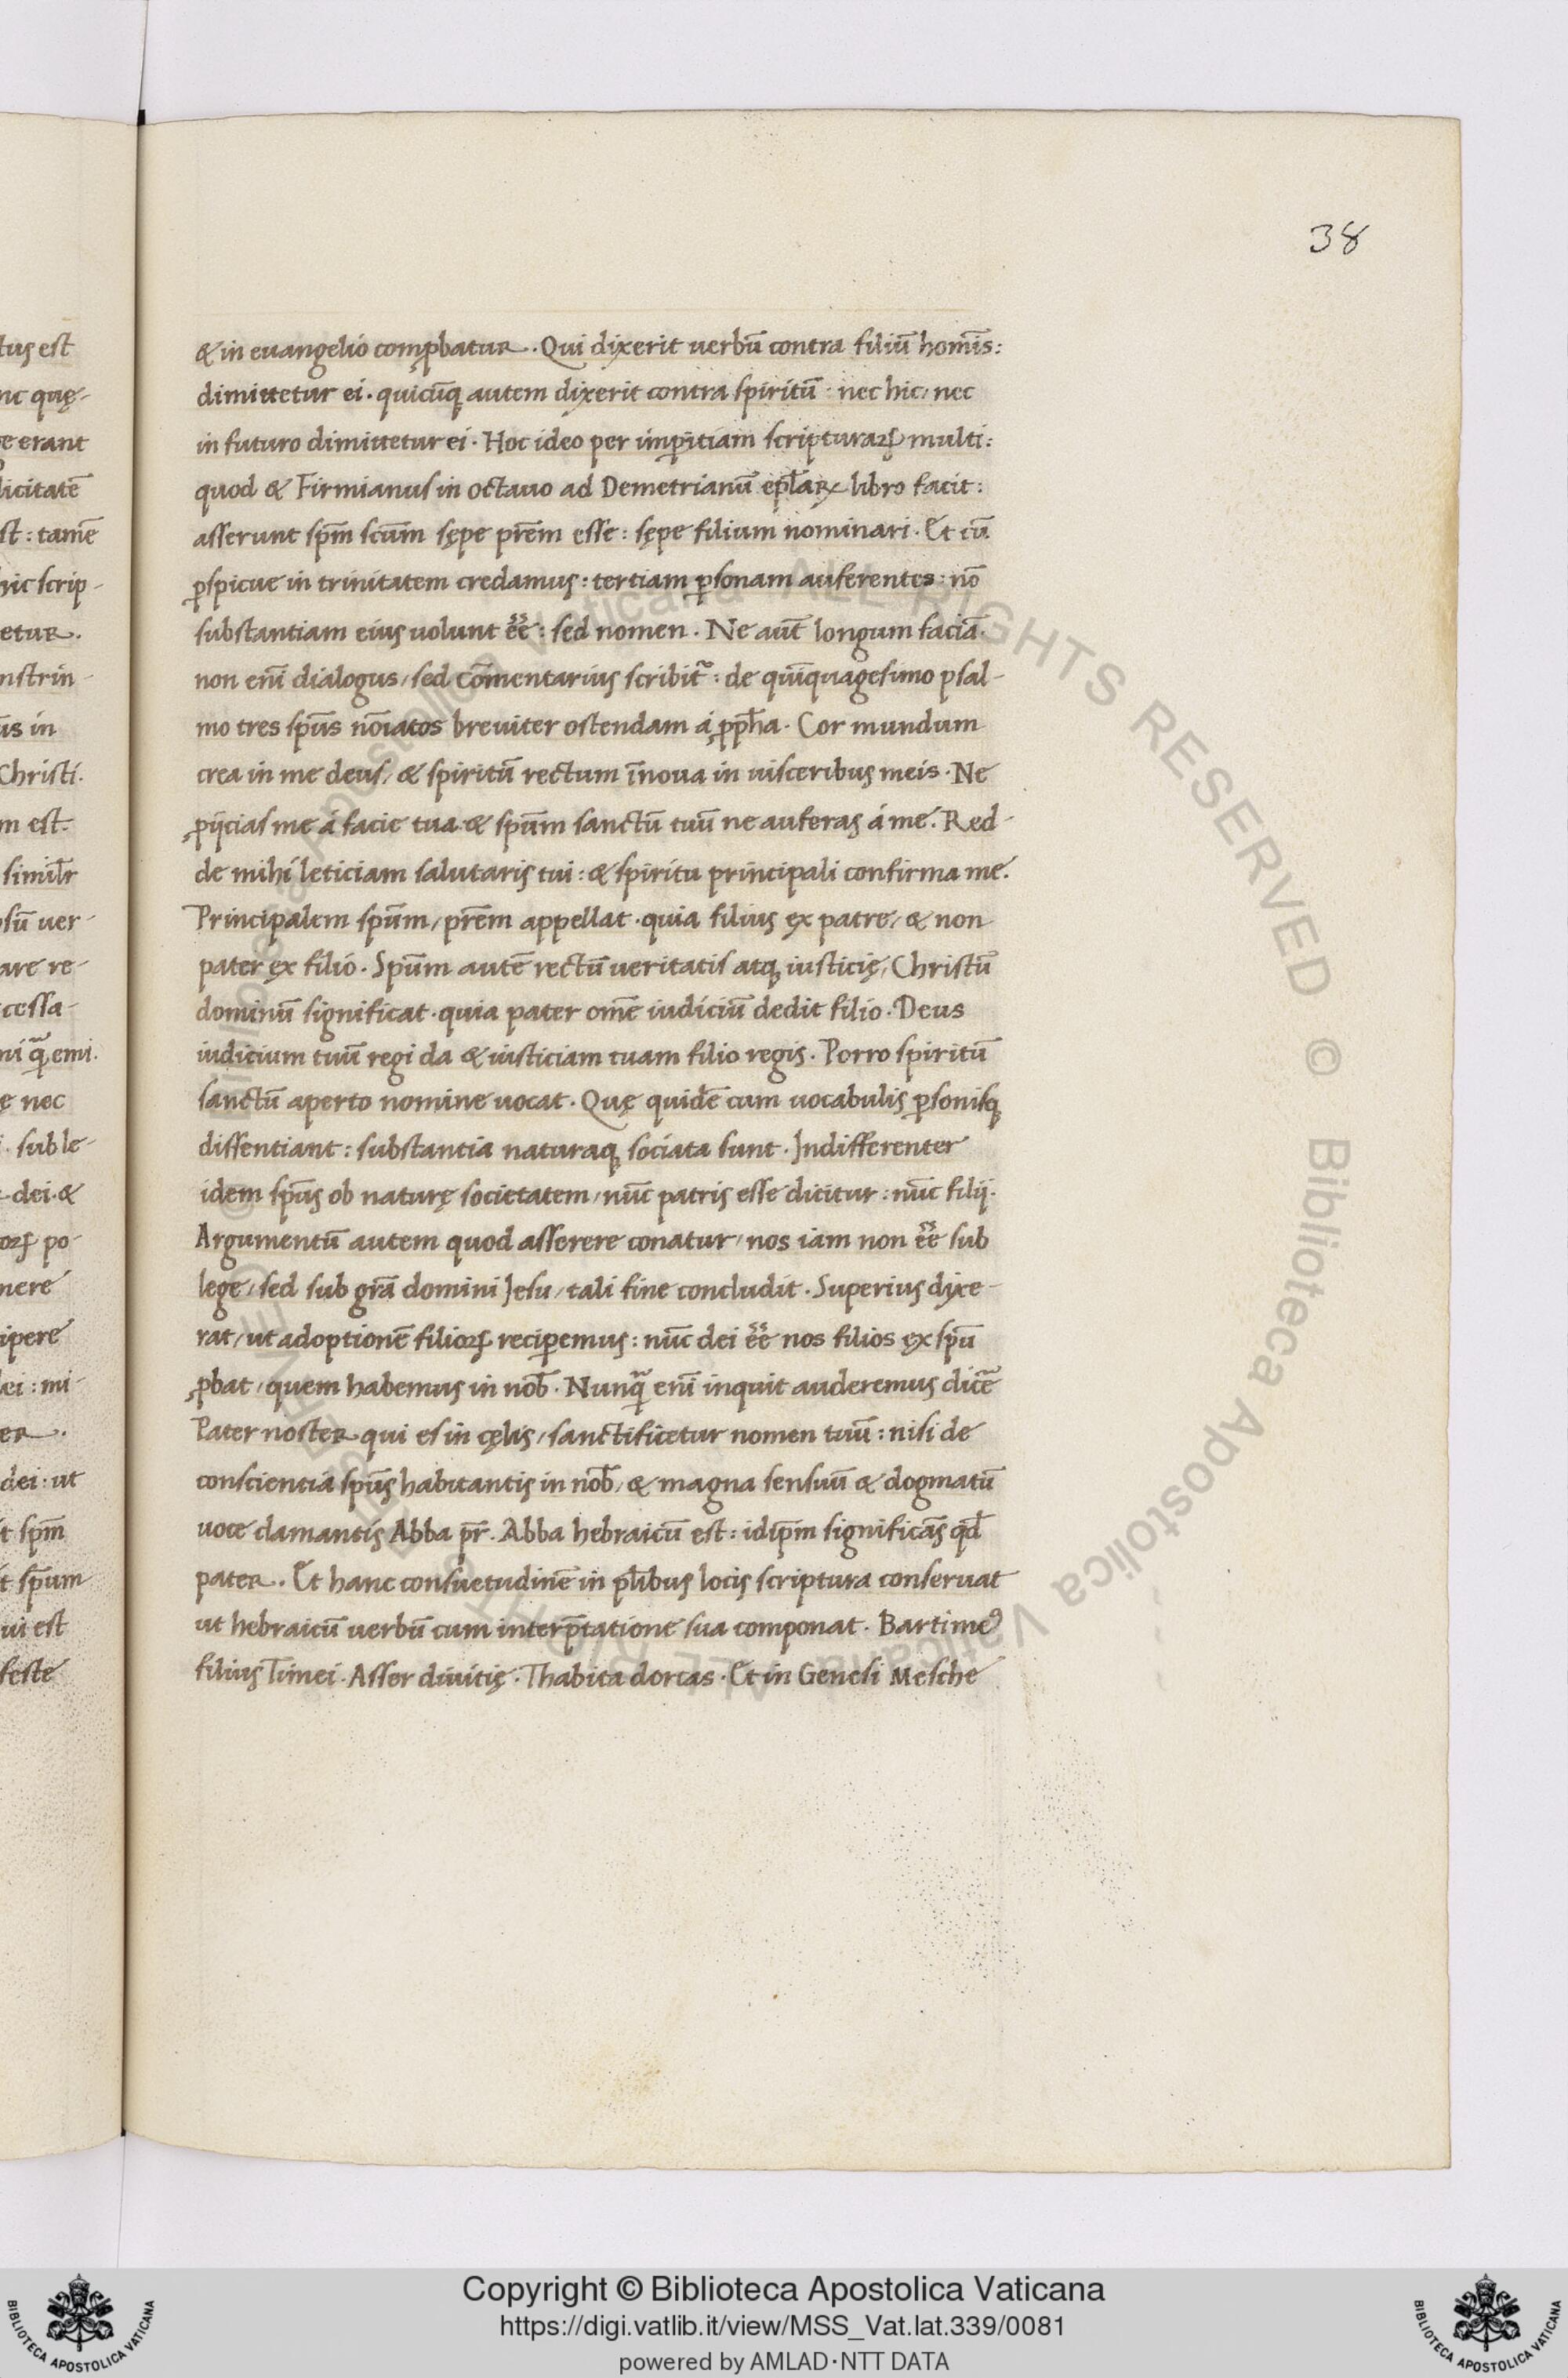 38
& in euangelio comꝓbatur. Qui dixerit uerbū contra filiū homīs:
dimittetur ei. quicūqꝫ autem dixerit contra spiritū · nec hic, nec
in futuro dimittetur ei. Hoc ideo per imꝑitiam scripturaꝝ multi:
quod & Firmianus in octauo ad Demetrianū epl̄aꝝ libro facit:
asserunt sp̄m scūm sępe pr̄em esse: sępe filium nominari. Et cū
ꝑspicue in trinitatem credamus: tertiam ꝑsonam auferentes: nō
substantiam eius uolunt eē̄: sed nomen. Ne aūt longum faciā.
non enī dialogus, sed cōmentarius scribit᷑: de quīquagesimo psal-
mo tres sp̄us nōiatos breuiter ostendam á ꝓph̄a. Cor mundum
crea in me deus, & spiritū rectum īnoua in uisceribus meis. Ne
ꝓijcias me á facie tua: & spūm sanctū tuū ne auferas á me. Red-
de mihi leticiam salutaris tui: & spiritu principali confirma me.
Principalem spūm, pr̄em appellat. quia filius ex patre, & non
pater ex filio. Spūm autē rectū ueritatis atqꝫ iusticię, Christū
dominū significat. quia pater om̄e iudiciū dedit filio. Deus
iudicium tuū regi da & iusticiam tuam filio regis. Porro spiritū
sanctū aperto nomine uocat. Quę quidē cum uocabulis ꝑsonisqꝫ
dissentiant: substantia naturaqꝫ sociata sunt. Indifferenter
idem sp̄us ob naturę societatem, nūc patris esse dicitur: nūc filij.
Argumentū autem quod asserere conatur, nos iam non eē̄ sub
lege, sed sub gr̄a domini Jesu, tali fine concludit. Superius dixe-
rat, ut adoptionē filioꝝ reciꝑemus: nūc dei eē̄ nos filios ex spū
ꝓbat, quem habemus in nob̄. Nunqꝫ̄ enī inquit auderemus dicē̄
Pater noster qui es in cęlis, sanctificetur nomen tuū: nisi de
conscientia sp̄us habitantis in nob̄, & magna sensuū & dogmatū
uoce clamantis Abba pr̄. Abba hebraicū est: idip̄m significās qd̄
pater. Et hanc consuetudinē in pl̄ibus locis scriptura conseruat
ut hebraicū uerbū cum interp̄tatione sua componat. Bartimeꝰ
filius Timei. Asser diuitię. Thabita dorcas. Et in Genesi Mesche
Copyright © Biblioteca Apostolica Vaticana
https://digi.vatlib.it/view/MSS_Vat.lat.339/0081
powered by AMLAD·NTT DATA